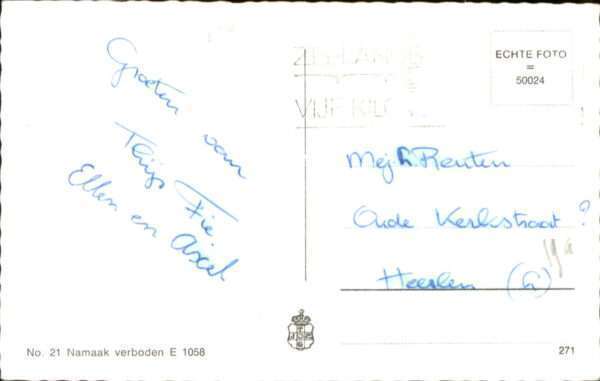 Groeten van
Thijs Fie
Ellen en Axel
ECHTE FOTO
=
50024
VIJF KILO
Mej. h. Reuten
Oude Kerkstraat ?
Heerlen (L)
No. 21 Namaak verboden E 1058
271